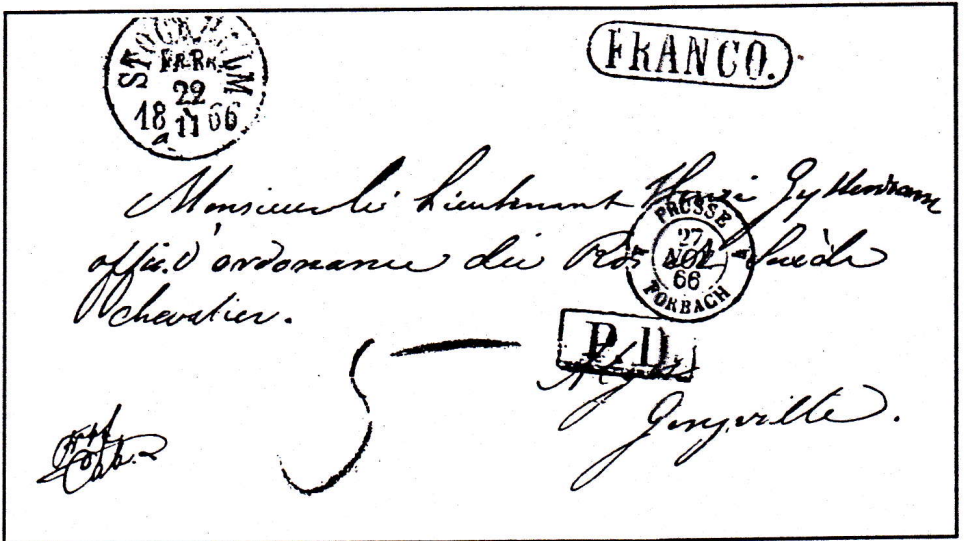 STOCKHOLM
FR.RR.
22
18 11 66
FRANCO.
Monsieur le Lieutenant Henri Gyllenram
offic. d'ordonance du Roi de Suède
chevalier.
PRUSSE
27
NOV.
66
FORBACH
P.D.
5
Geryville.